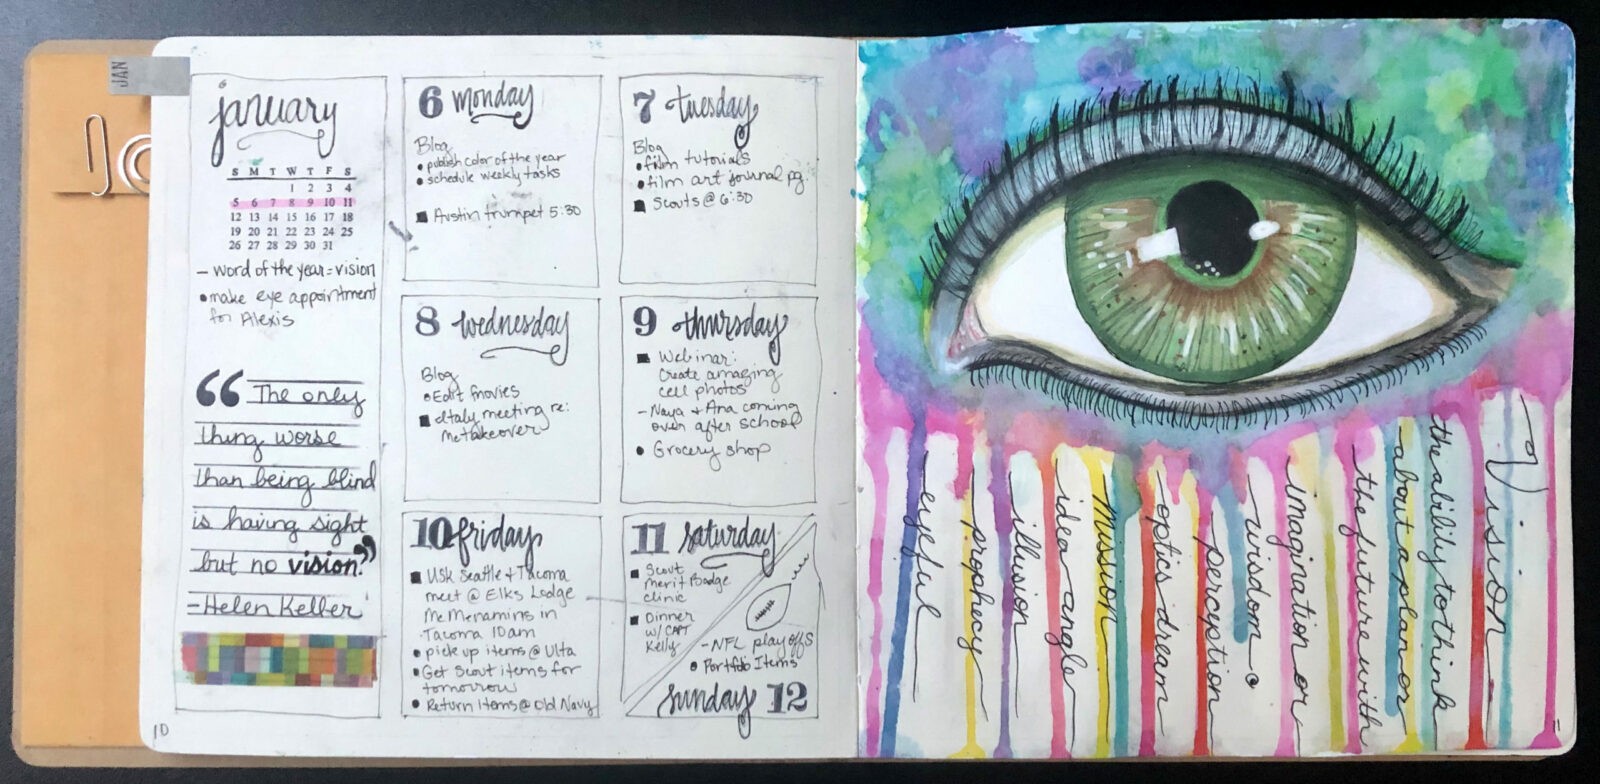 JAN
january
S M T W T F S
1 2 3 4
5 6 7 8 9 10 11
12 13 14 15 16 17 18
19 20 21 22 23 24 25
26 27 28 29 30 31
- word of the year = vision
• make eye appointment
for Alexis
“ The only
thing worse
than being blind
is having sight
but no vision.”
- Helen Keller
10
6 monday
Blog
• publish color of the year
• schedule weekly tasks
■ Austin trumpet 5:30
7 tuesday
Blog
• film tutorials
• film art journal pg.
■ Scouts @ 6:30
8 wednesday
Blog
• Edit movies
■ Italy meeting re:
metakeover
9 thursday
■ Webinar:
Create amazing
cell photos
- Naya + Ana coming
over after school
• Grocery shop
10 friday
■ USK Seattle + Tacoma
meet @ Elks Lodge
McMenamins in
Tacoma 10am
• pick up items @ Ulta
• Get Scout items for
tomorrow
• Return Items @ Old Navy
11 saturday
■ Scout
Merit Badge
clinic
■ Dinner
w/ CAPT
Kelly
- NFL playoffs
• Portfolio Items
sunday 12
Vision
the ability to think
about a plan or
the future with
imagination or
wisdom
perception
optics dream
mission
idea angle
illusion
prophecy
eyeful
11